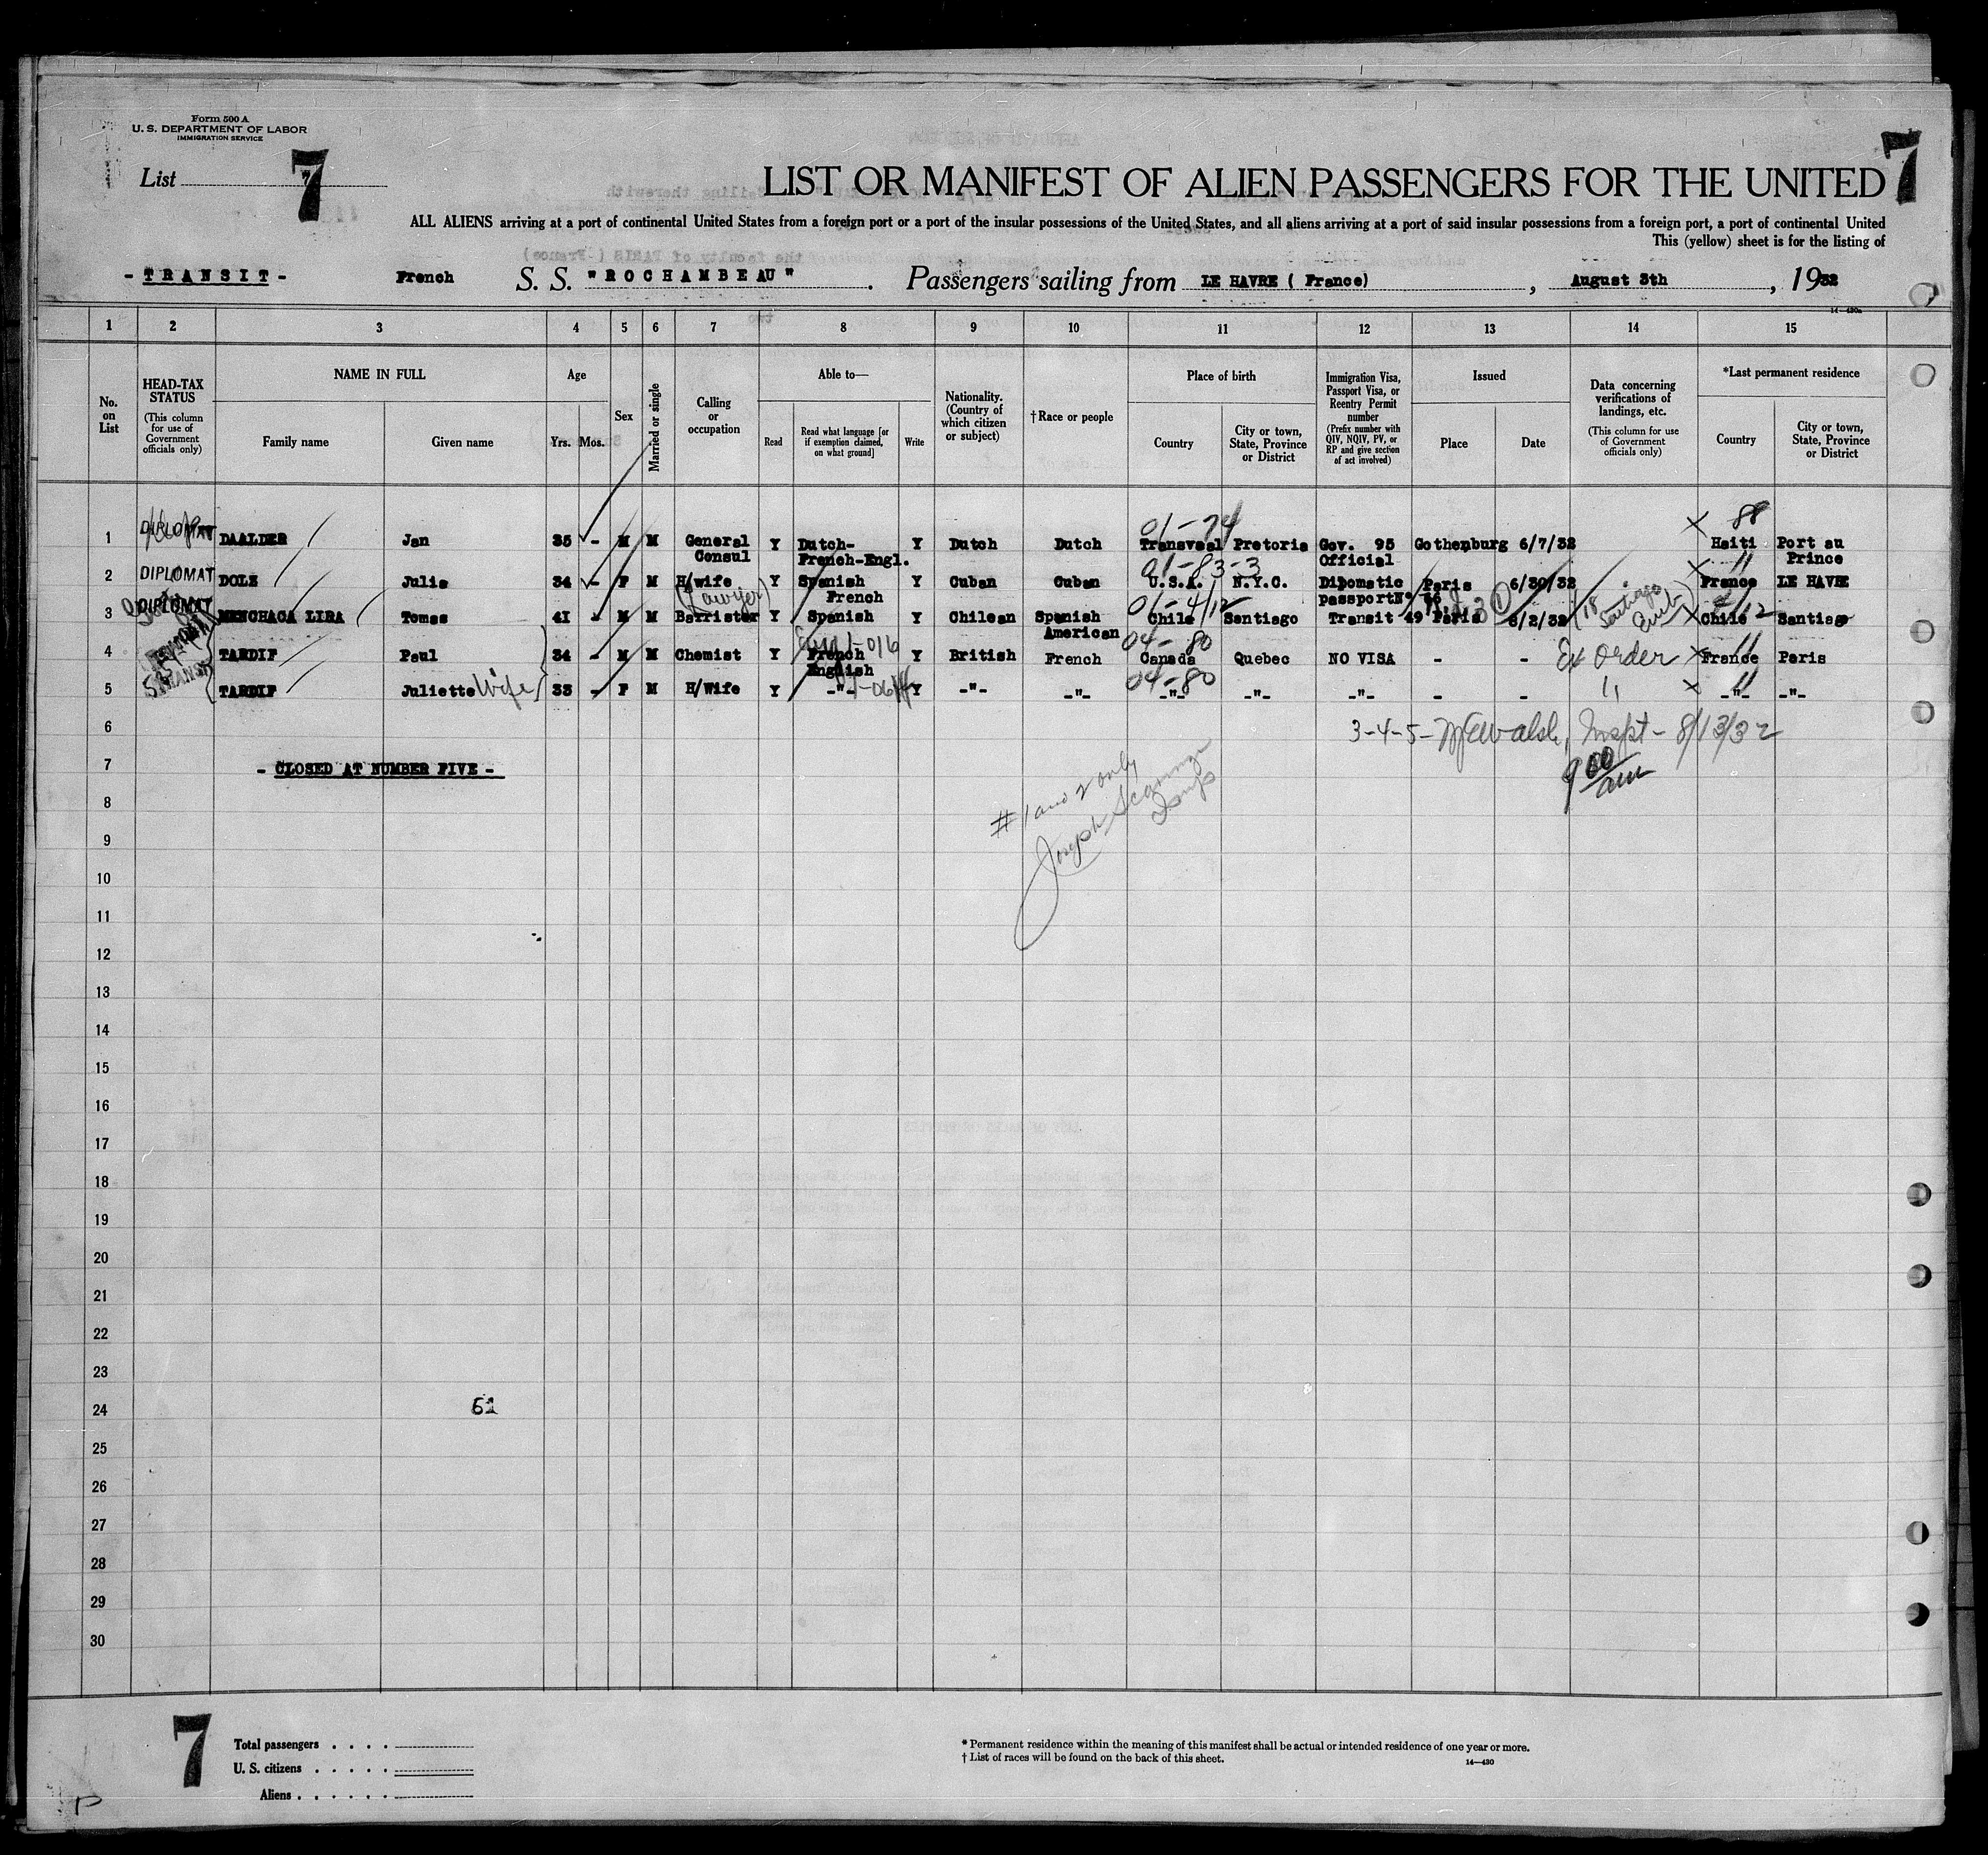 Form 500 A
U. S. DEPARTMENT OF LABOR
IMMIGRATION SERVICE
List 7
7
LIST OR MANIFEST OF ALIEN PASSENGERS FOR THE UNITED
7
ALL ALIENS arriving at a port of continental United States from a foreign port or a port of the insular possessions of the United States, and all aliens arriving at a port of said insular possessions from a foreign port, a port of continental United
This (yellow) sheet is for the listing of
- TRANSIT - French S. S. "ROCHAMBEAU". Passengers sailing from LE HAVRE ( France), August 3th, 1932
14—430a
1 2 3 4 5 6 7 8 9 10 11 12 13 14 15
No. on List
HEAD-TAX STATUS (This column for use of Government officials only)
NAME IN FULL
Family name
Given name
Age
Yrs. Mos.
Sex
Married or single
Calling or occupation
Able to—
Read
Read what language [or if exemption claimed, on what ground]
Write
Nationality. (Country of which citizen or subject)
† Race or people
Place of birth
Country
City or town, State, Province or District
Immigration Visa, Passport Visa, or Reentry Permit number (Prefix number with QIV, NQIV, PV, or RP and give section of act involved)
Issued
Place
Date
Data concerning verifications of landings, etc. (This column for use of Government officials only)
*Last permanent residence
Country
City or town, State, Province or District
01-74 88
1 DIPLOMAT DAALDER Jan 35 - M M General Consul Y Dutch-French-Engl. Y Dutch Dutch Transvaal Pretoria Gov. 95 Official Gothenburg 6/7/32 Haiti Port au Prince
01-83-3
2 DIPLOMAT DOLZ Julia 34 - F M H/wife Y Spanish French Y Cuban Cuban U.S.A. N.Y.C. Dipomatic passport N° 66 Paris 6/30/32 France LE HAVRE
(Lawyer) 01-4/12
3 DIPLOMAT MENCHACA LIRA Tomas 41 - M M Barrister Y Spanish Y Chilean Spanish American Chile Santiago Transit 49 Paris 8/2/32 Santiago Chile Santiago
04-80
4 TARDIF Paul 34 - M M Chemist Y French English Y British French Canada Quebec NO VISA - - Ex Order France Paris
04-80
5 TARDIF Juliette Wife 33 - F M H/Wife Y -"- Y -"- -"- -"- -"- -"- - - " -"- -"-
6
3-4-5- Walsh, Inspt - 8/13/32
9 00 am
7 - CLOSED AT NUMBER FIVE -
8
# 1 and 2 only
Joseph
9
10
11
12
13
14
15
16
17
18
19
20
21
22
23
24
51
25
26
27
28
29
30
7
Total passengers . . . .
U. S. citizens . . . . .
Aliens . . . . . .
* Permanent residence within the meaning of this manifest shall be actual or intended residence of one year or more.
† List of races will be found on the back of this sheet.
14—430